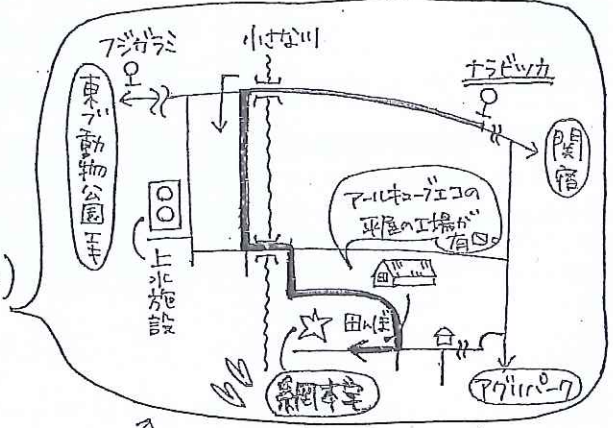 フジガラミ
小さな川
ナラビツカ
東ブ動物公園エキ
関宿
アールキューブエコの
平屋の工場が
有
上水施設
田んぼ
本宅
アグリパーク